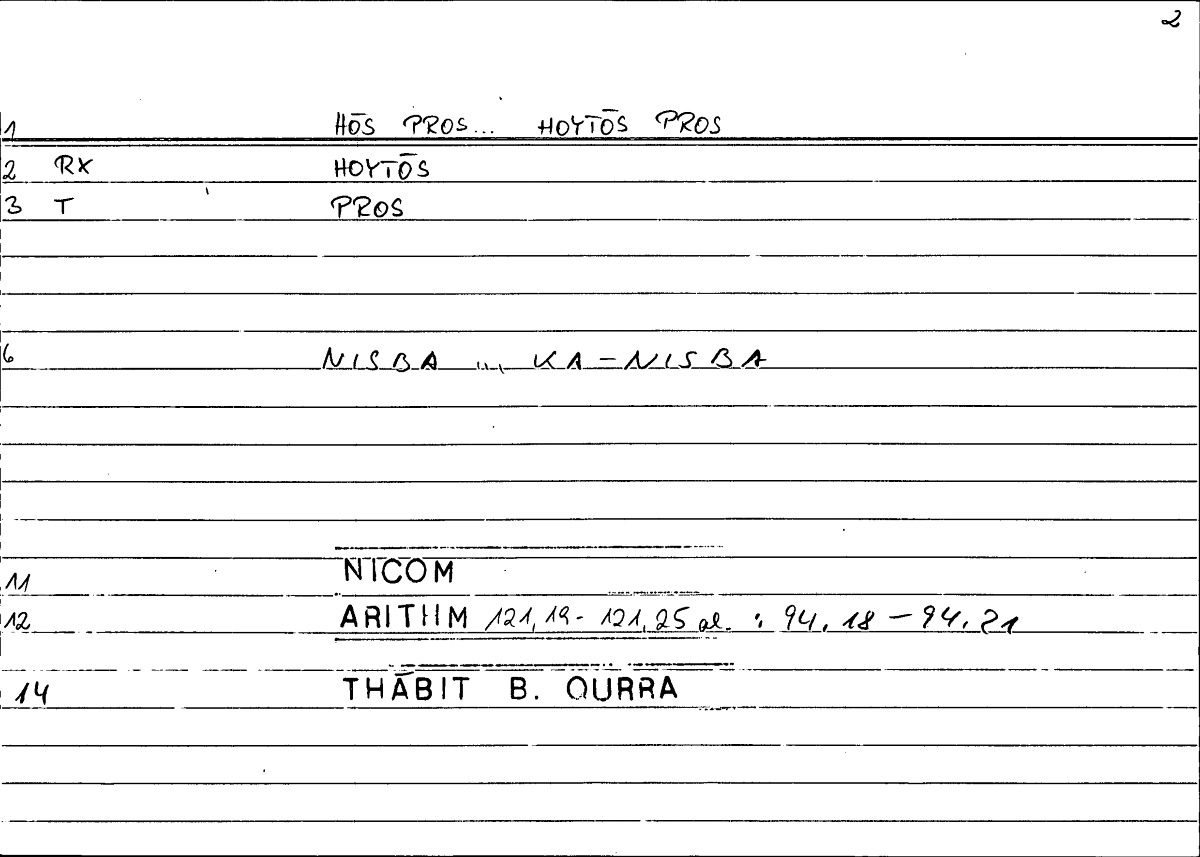 2
1 HŌS PROS... HOYTŌS PROS
2 RX HOYTŌS
3 T PROS
6 NISBA ... KA-NISBA
11 NICOM
12 ARITHM 121,19- 121,25 al. : 94.18 - 94.21
14 THĀBIT B. QURRA